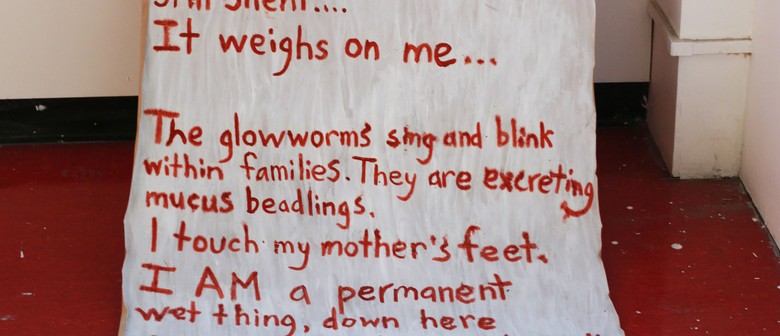 still silent....
It weighs on me...
The glowworms sing and blink
within families. They are excreting
mucus beadlings.
I touch my mother's feet.
I AM a permanent
wet thing, down here